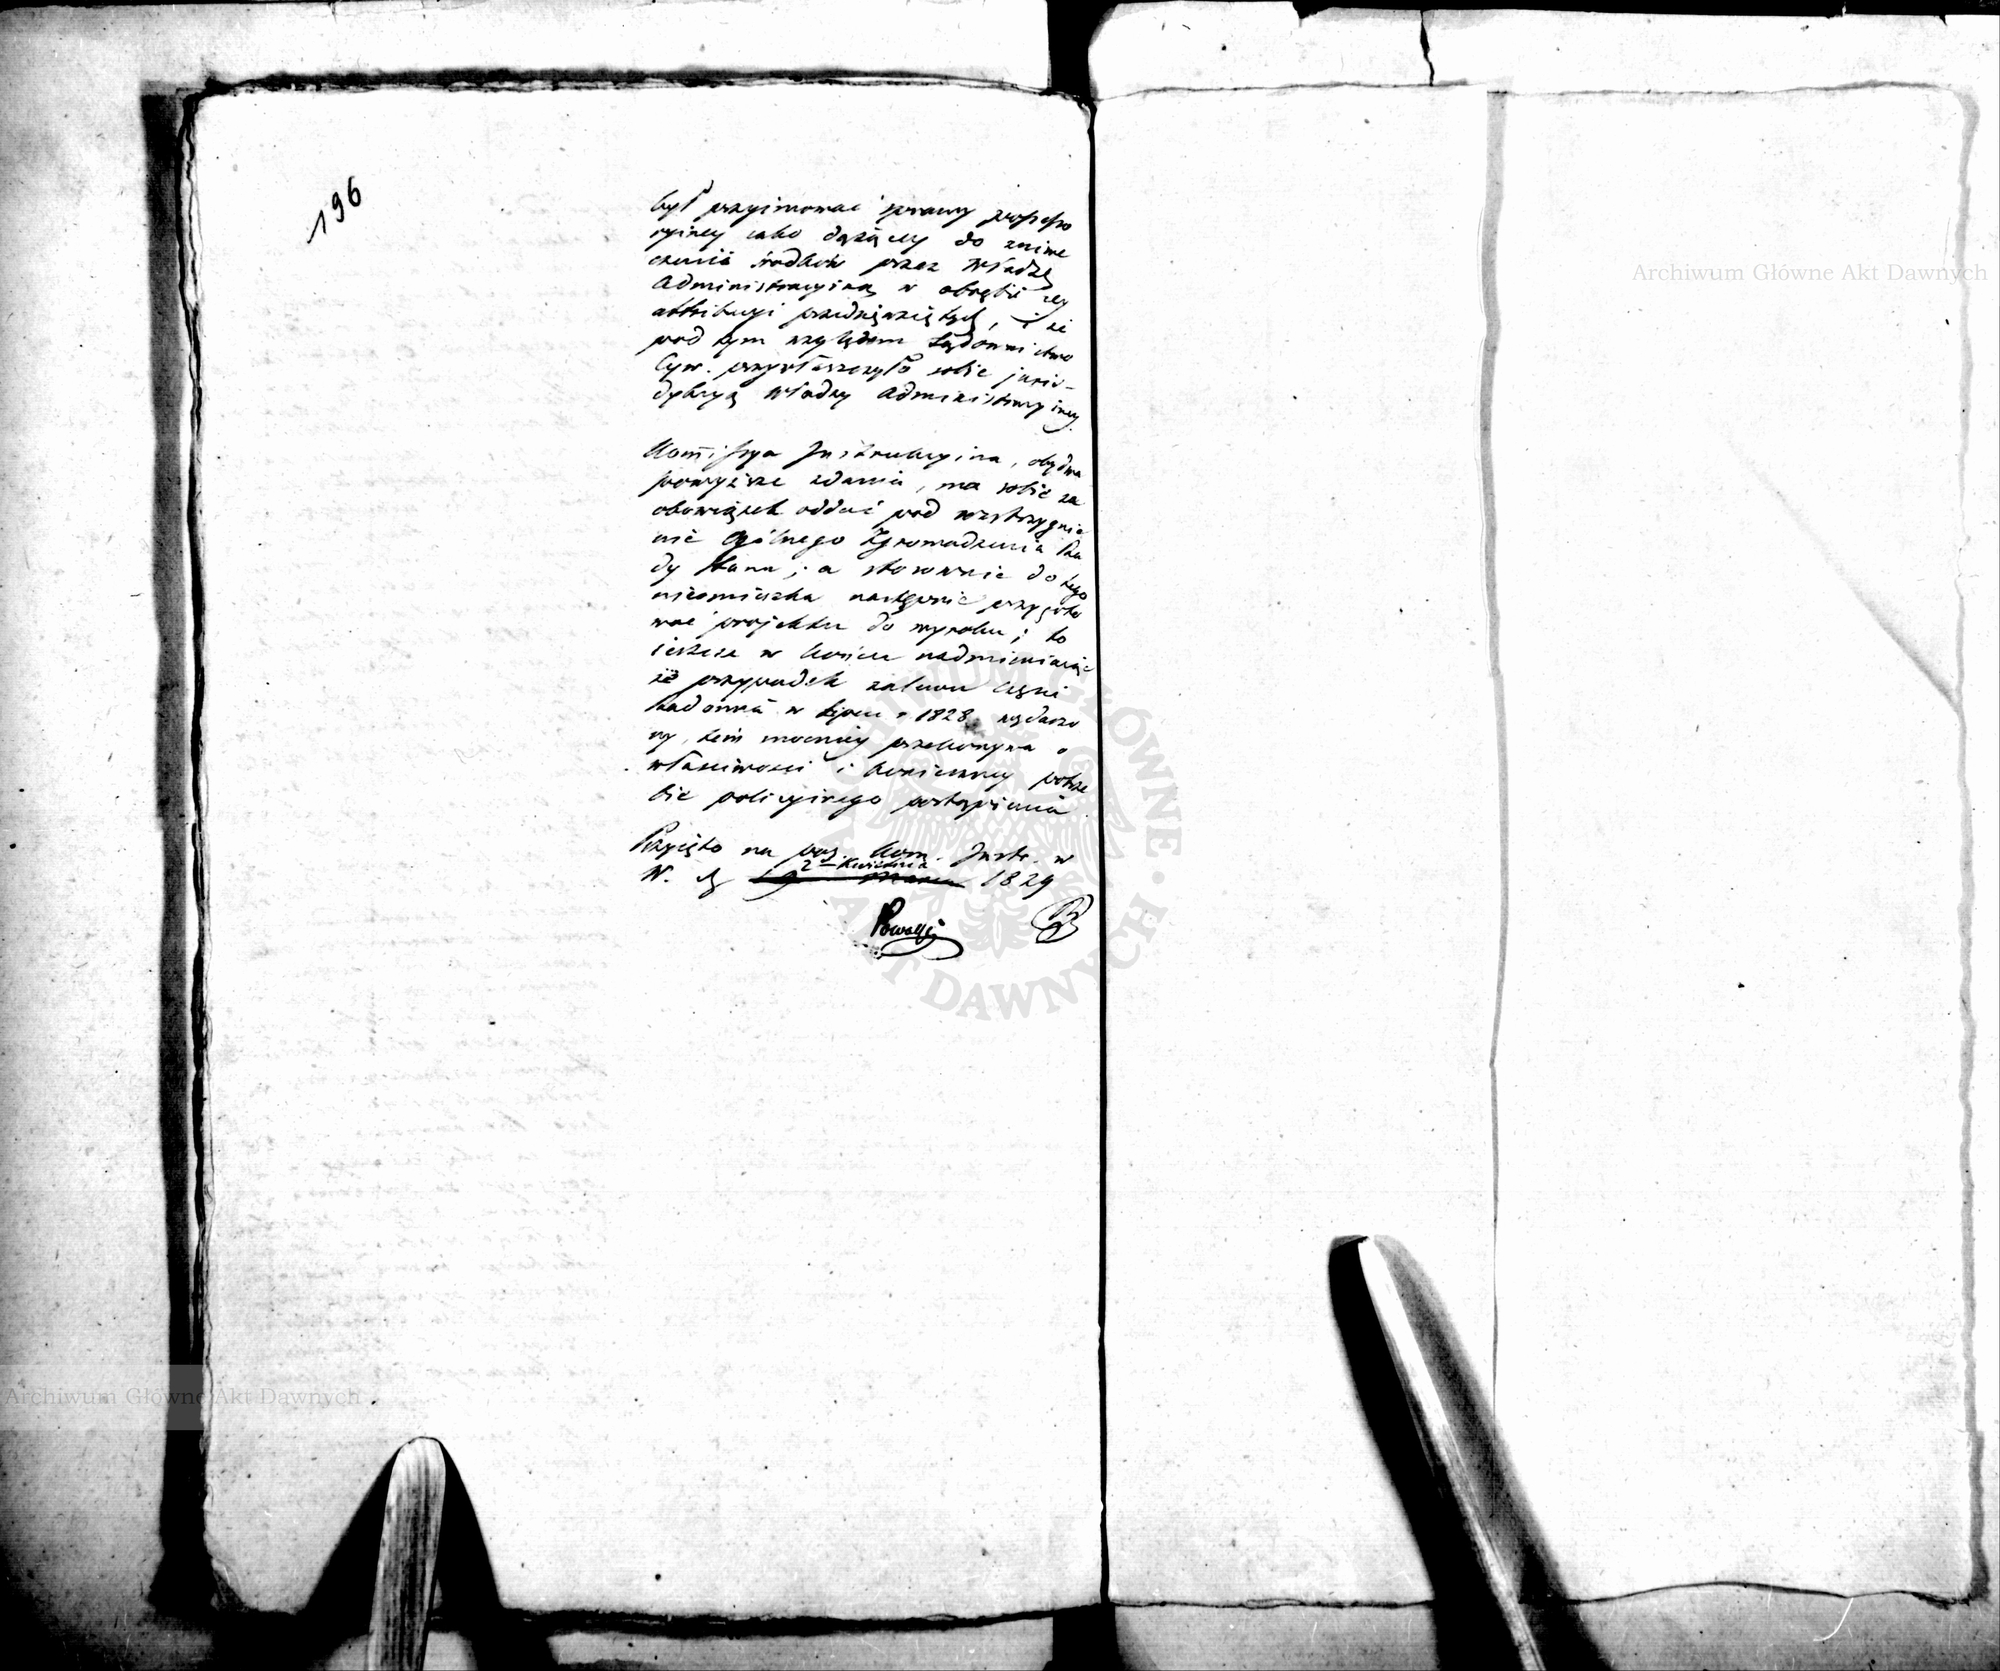 196
był przyimować sprawy possesso
ryiney iako dążącey do zniwe
czenia środków przez Władzę
Administracyiną w obrębie iey
attribucyi przedsięwziętych, i że
pod tym względem Sądownictwo
Cyw. przywłaszczyło sobie juris-
dykcyą Władzy Administracyiney.
Kommissya Instrukcyina, obydwa
powyższe zdania, ma sobie za
obowiązek oddać pod rozstrzygnie
nie Ogólnego Zgromadzenia Ra
dy Stanu; a stosownie do tego
nieomieszka następnie przygoto
wać projektu do wyroku; to
ieszcze w końcu nadmieniaiąc
że przypadek zalewu części
Radomia w Lipcu r. 1828 wydarzo
ny, tém mocniey przekonywa o
właściwości i konieczney potrze
bie policyinego postąpienia
Przyięto na pos. Kom. Instr. w
2 Kwietnia
W. d. 19 Marca 1829
Archiwum Główne Akt Dawnych
Archiwum Główne Akt Dawnych
ARCHIWUM GŁÓWNE AKT DAWNYCH